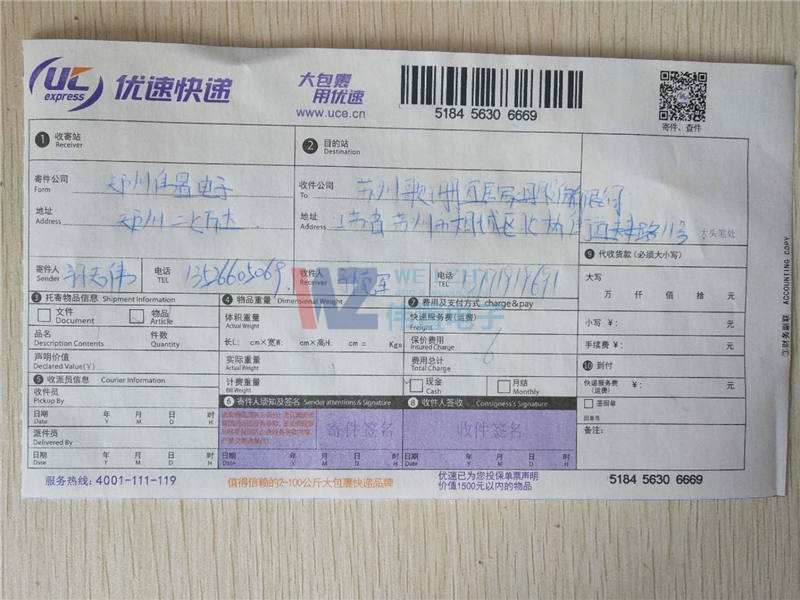 UC
express
优速快递
大包裹
用优速
www.uce.cn
5184 5630 6669
寄件、查件
1 收寄站
Receiver
2 目的站
Destination
寄件公司
Form
郑州伟盈电子
收件公司
To
苏州
有限公司
地址
Address
郑州二七万达
地址
Address
江苏省苏州市相城区北桥
路11号
大头笔处
寄件人
Sender
电话
TEL
13526605069
收件人
Receiver
电话
TEL
WZ
伟盈电子
3 托寄物品信息 Shipment Information
文件
Document
物品
Article
品名
Description Contents
件数
Quantity
声明价值
Declared Value(￥)
4 物品重量 Dimensional Weight
体积重量
Actual Weight
长L: cm×宽W: cm×高H: cm = Kgs
实际重量
Actual Weight
计费重量
Bill Weight
7 费用及支付方式 charge&pay
快递服务费(运费)
Freight
保价费用
Insured Charge
费用总计
Total Charge
6
现金
Cash
月结
Monthly
9 代收货款 (必须大小写)
大写
万 仟 佰 拾 元
小写 ￥: 元
手续费 ￥: 元
10 到付
快递服务费
(运费)
￥: 元
签回单
回单号
备注:
5 收派员信息 Courier Information
收件员
Pickup By
日期 年 月 日 时
Date Y M D H
派件员
Delivered By
日期 年 月 日 时
Date Y M D H
6 寄件人须知及签名 Sender attentions & Signature
寄件签名
日期 年 月 日 时
Date Y M D H
8 收件人签收 Consigness's Signature
收件签名
日期 年 月 日 时
Date Y M D H
ACCOUNTING COPY
服务热线: 4001-111-119
值得信赖的2-100公斤大包裹快递品牌
优速已为您投保单票声明
价值1500元以内的物品
5184 5630 6669